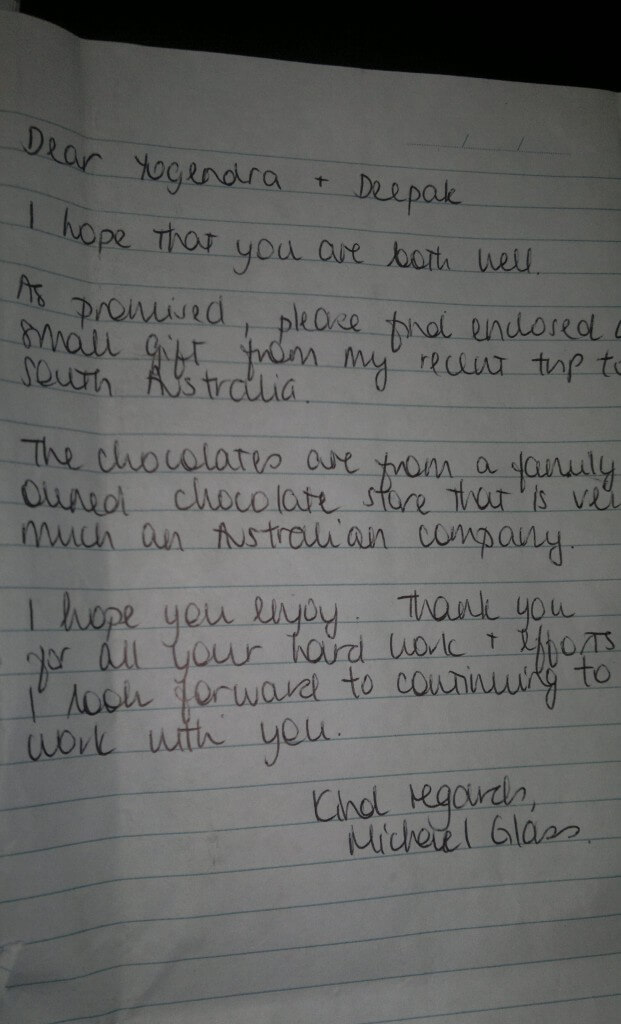 Dear Yogendra + Deepak
I hope that you are both well.
As promised, please find enclosed a
small gift from my recent trip to
South Australia.
The chocolates are from a family
owned chocolate store that is ver
much an Australian company.
I hope you enjoy. Thank you
for all your hard work + efforts
I look forward to continuing to
work with you.
Kind regards,
Michael Glass.